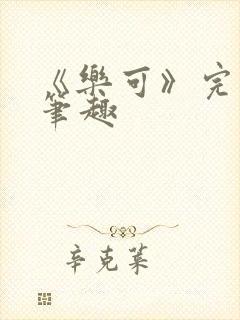 《樂可》完
筆趣
辛克萊